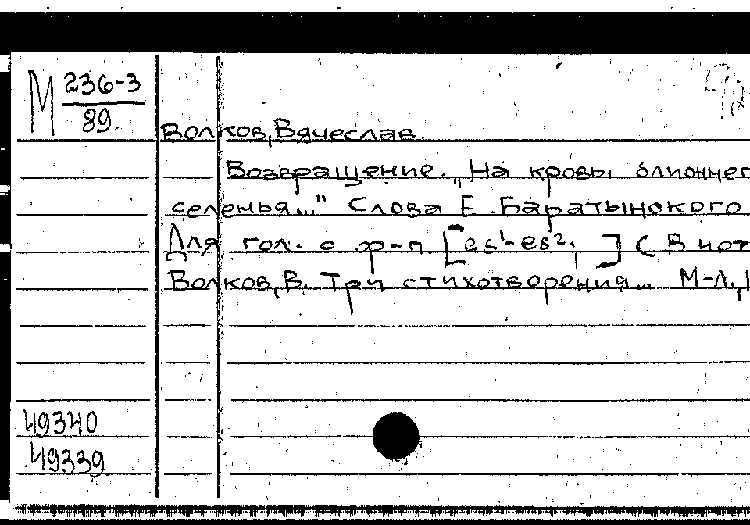 М 236-3
89
Волков, Вячеслав
Возвращение. „На кровы ближнег
селенья..." Слова Е. Баратынского
Для гол. с ф-п [es¹-es².] (В нот
Волков, В. Три стихотворения... М-Л.,
49340
49339